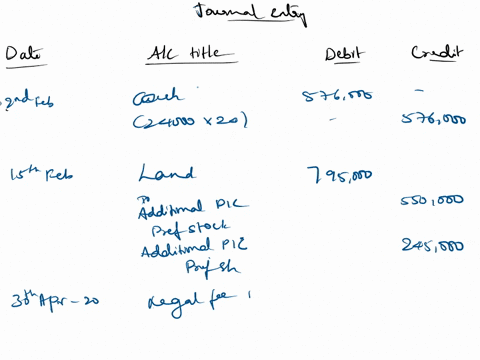 Journal entry
Date A/C title Debit Credit
2nd Feb Cash 576,000 -
(24000 x 24) - 576,000
15th Feb Land 795,000
To
Additional PIC 550,000
Pref stock
Additional PIC 245,000
Pref sh
30th Apr-20 Legal fee